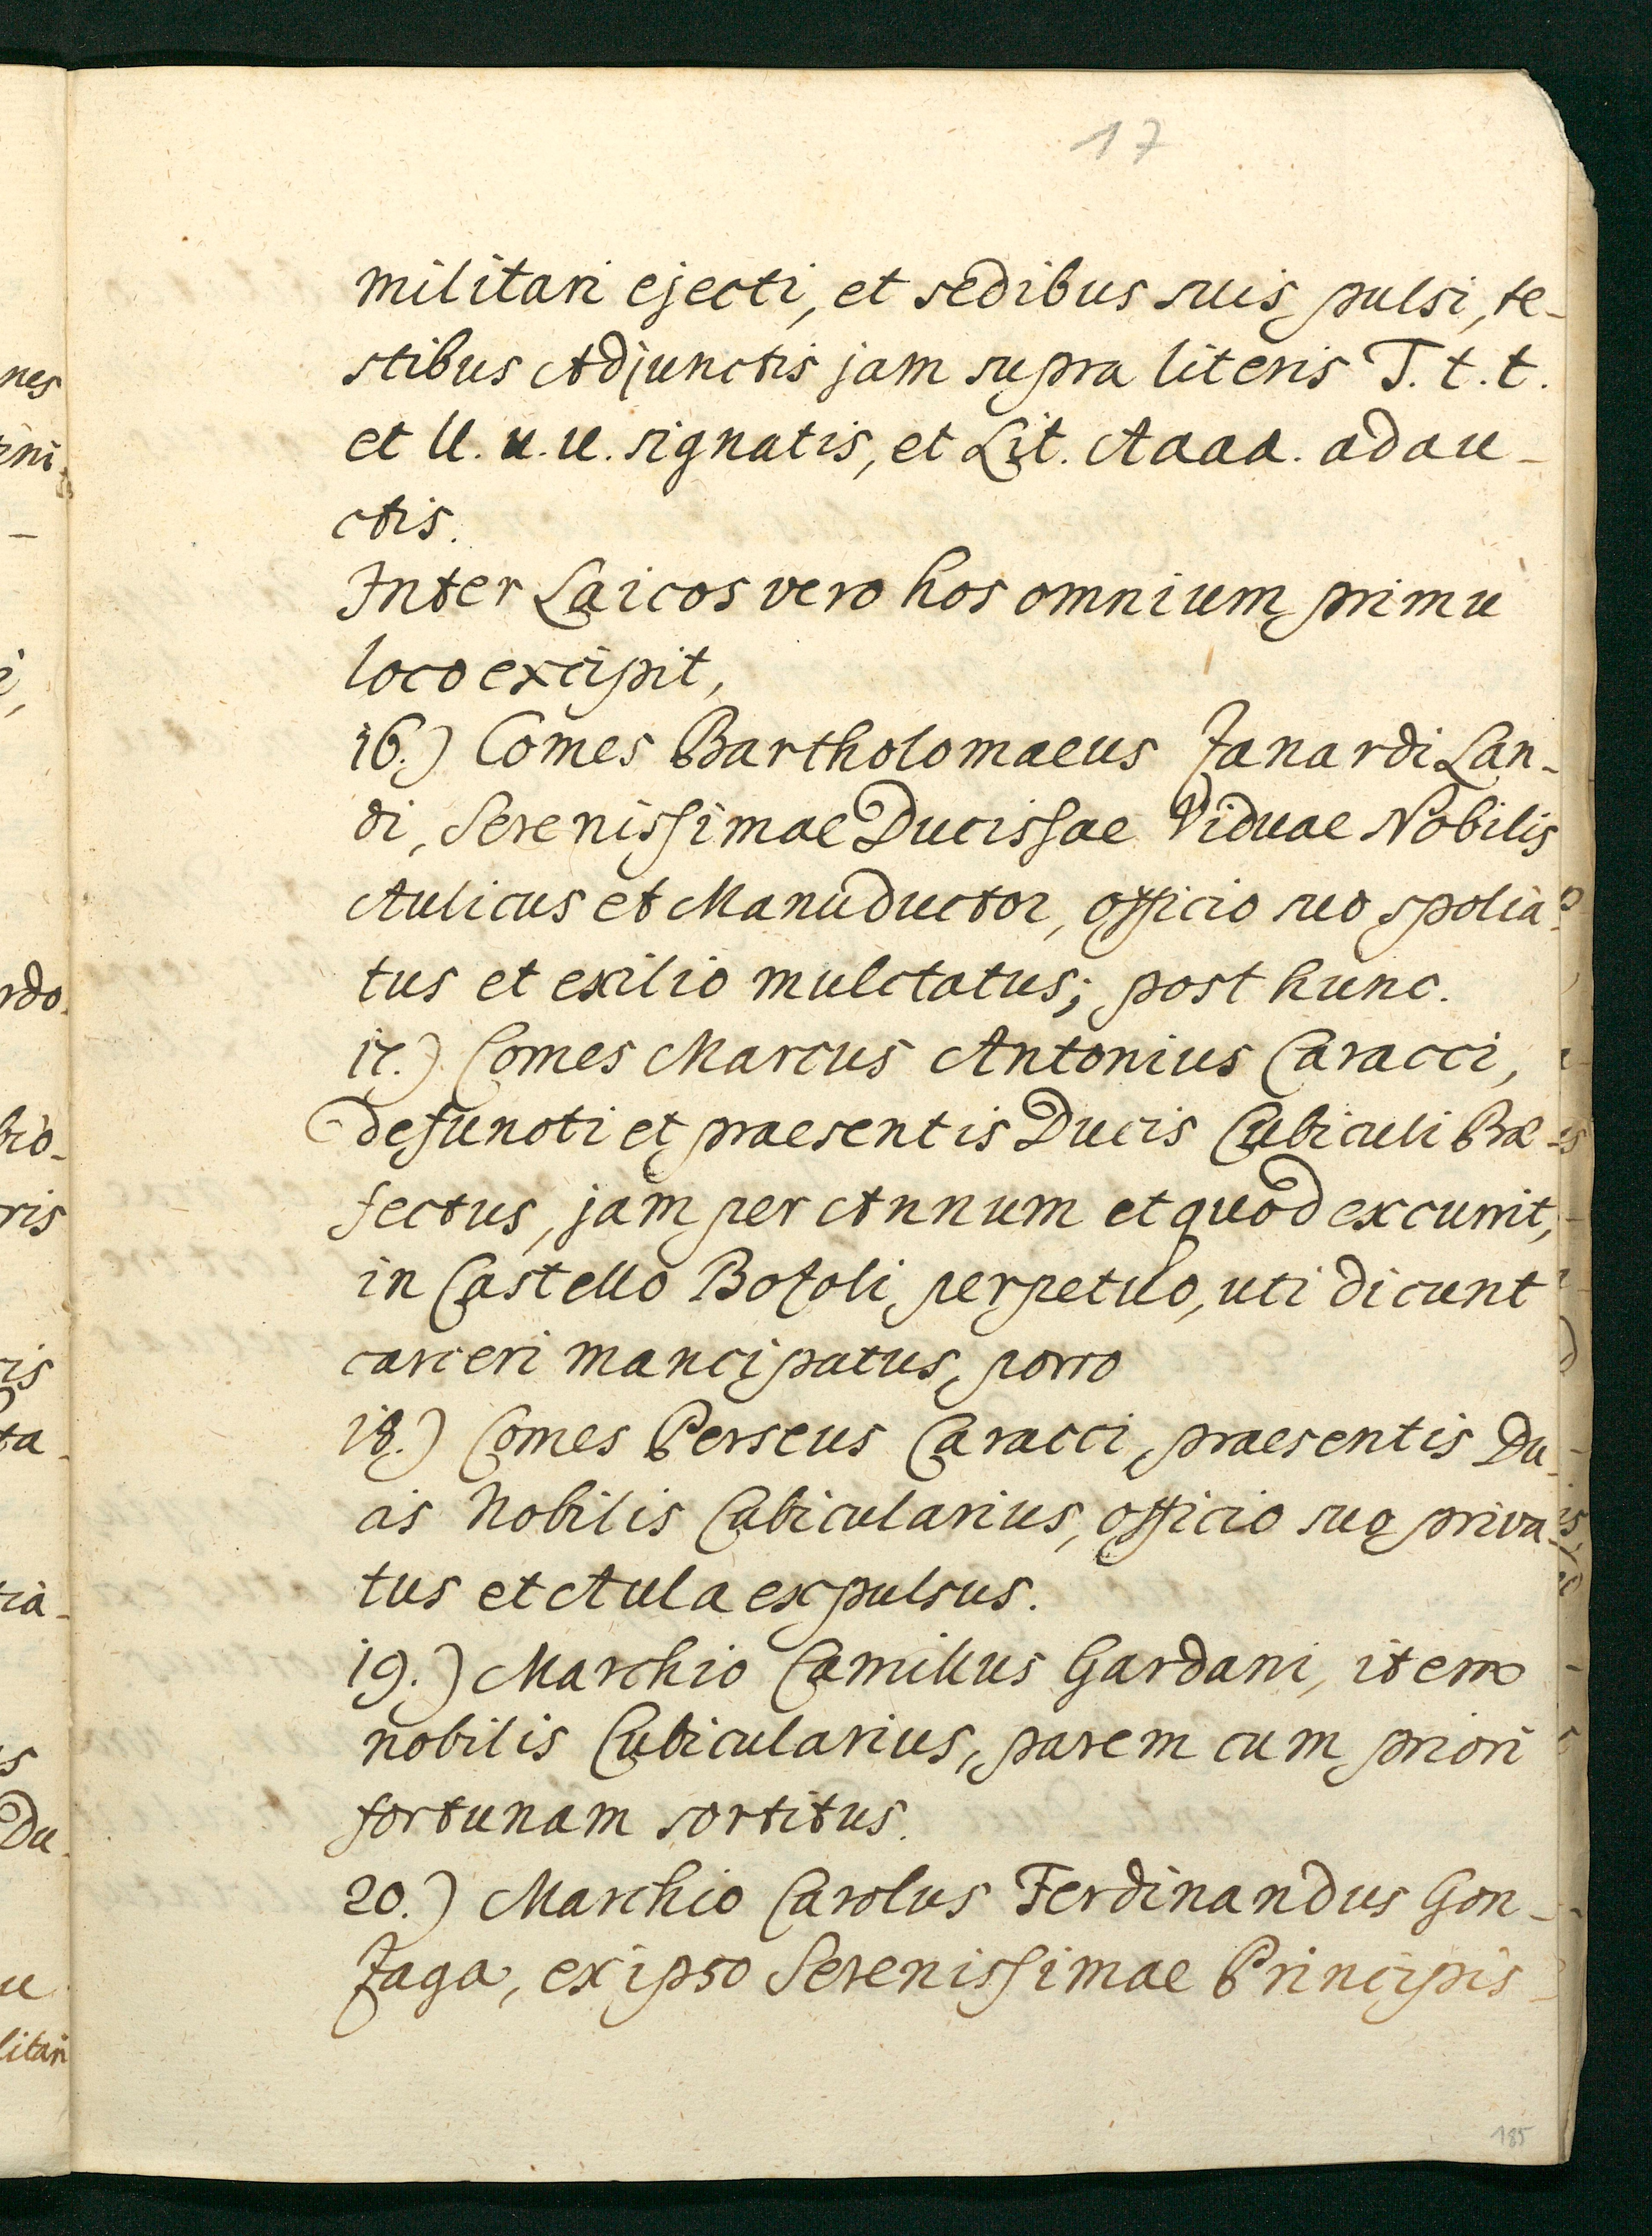 17
militari ejecti, et sedibus suis pulsi, te-
stibus Adjunctis jam supra literis T. t. t.
et U. u. u. signatis, et Lit. Aaaa. adau-
ctis.
Inter Laicos vero hos omnium primu
loco excipit,
16.) Comes Bartholomaeus Zanardi Lan-
di, Serenissimae Ducissae Viduae Nobilis
Aulicus et Manuductor, officio suo spolia-
tus et exilio mulctatus; post hunc.
17.) Comes Marcus Antonius Caracci,
defuncti et praesentis Ducis Cubiculi Prae-
fectus, jam per Annum et quod excurrit,
in Castello Bozoli perpetuo, uti dicunt
carceri mancipatus, porro
18.) Comes Perseus Caracci, praesentis Du-
cis Nobilis Cubicularius, officio suo priva-
tus et Aula expulsus.
19.) Marchio Camillus Gardani, item
nobilis Cubicularius, parem cum priori
fortunam sortitus.
20.) Marchio Carolus Ferdinandus Gon-
zaga, ex ipso Serenissimae Principis
185